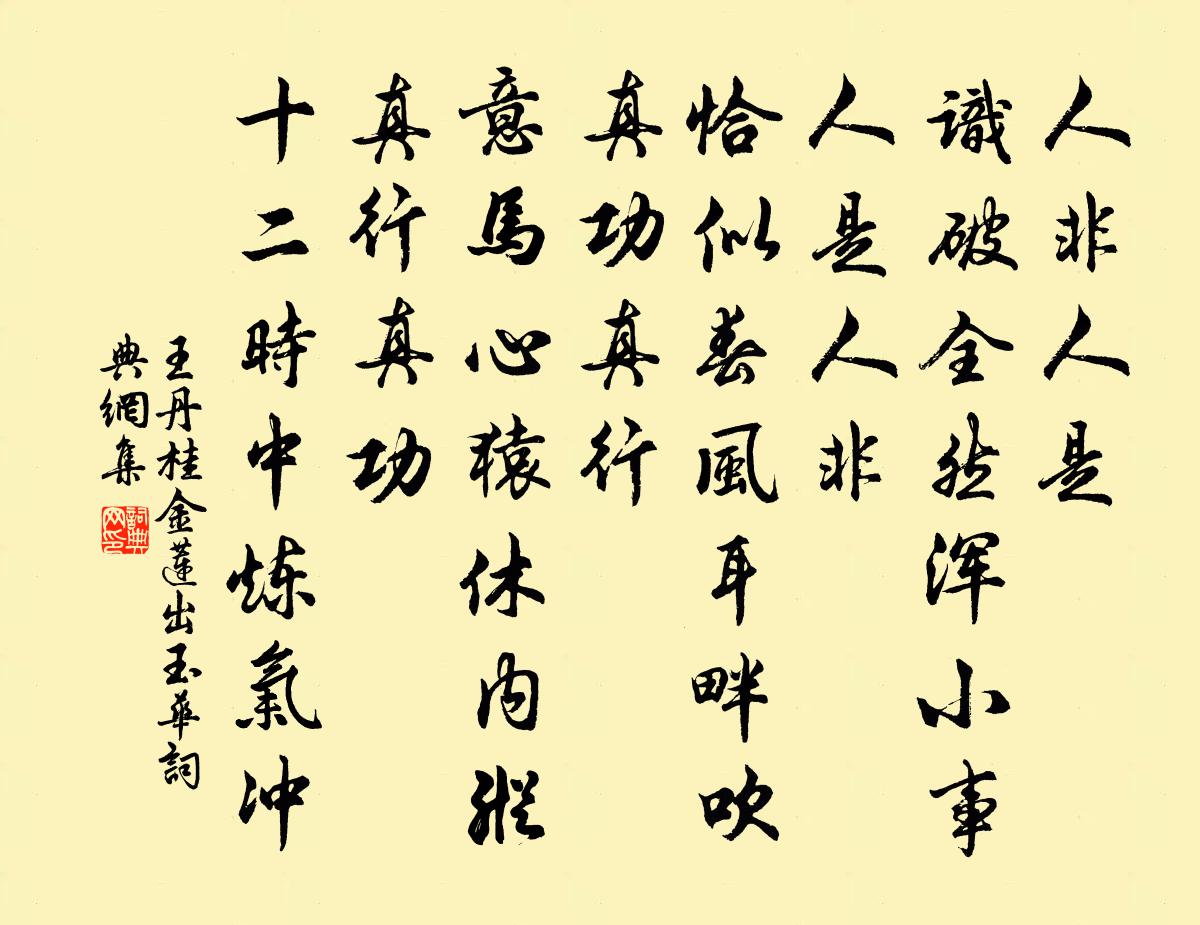 人非人是
識破全然浑小事
人是人非
恰似春風耳畔吹
真功真行
意馬心猿休内縱
真行真功
十二時中炼氣冲
王丹桂金蓮出玉華詞
典網集
詞典网印